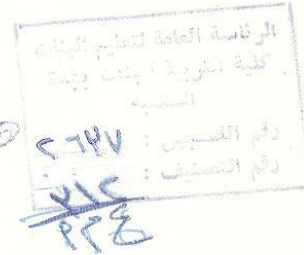 الرئاسة العامة لتعليم البنات
كلية التربية للبنات بجدة
المكتبة
رقم التخصيص : ٢٦٧٧
رقم التصنيف : ٧١٢
م ر ع